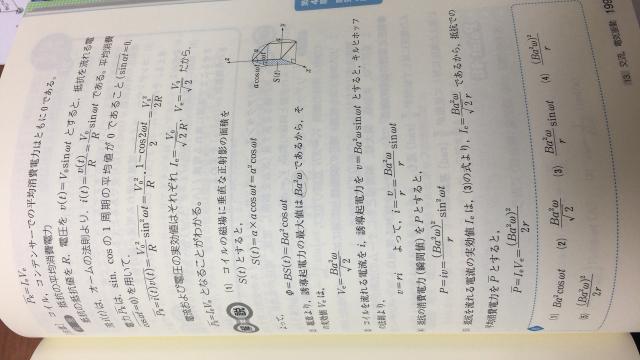 P̄c=IeVe
コイル，コンデンサーでの平均消費電力はともに0である。
抵抗の平均消費電力
抵抗の抵抗値をR，電圧を v(t)=V₀sinωt とすると，抵抗を流れる電
流i(t)は，オームの法則より，i(t)=v(t)/R=V₀/R sinωt である。平均消費
電力P̄Rは，sin，cosの1周期の平均値が0であること(sinωt=0,
cosωt=0)を用いて，
P̄R=i(t)v(t)=V₀²/R sin²ωt=V₀²/R・(1-cos2ωt)/2=V₀²/2R
電流および電圧の実効値はそれぞれ Ie=V₀/√2R，Ve=V₀/√2 だから，
P̄R=IeVe となることがわかる。
解説
(1) コイルの磁場に垂直な正射影の面積を
S(t)とすると，
S(t)=a×acosωt=a²cosωt
よって，
Φ=BS(t)=Ba²cosωt
acosωt
S(t)
題意より，誘導起電力の最大値はBa²ωであるから，そ
の実効値Veは，
Ve=Ba²ω/√2
コイルを流れる電流をi，誘導起電力を v=Ba²ωsinωt とすると，キルヒホッフ
の法則より，
v=ri よって，i=v/r=Ba²ω/r sinωt
抵抗の消費電力(瞬間値)をPとすると，
P=iv=(Ba²ω)²/r sin²ωt
抵抗を流れる電流の実効値Ieは，(3)の式より，Ie=Ba²ω/√2r であるから，抵抗での
平均消費電力をP̄とすると，
P̄=IeVe=(Ba²ω)²/2r
(1) Ba²cosωt (2) Ba²ω/√2 (3) Ba²ω/r sinωt (4) (Ba²ω)²/r
(5) (Ba²ω)²/2r
13 交流，電気振動 199
第4章